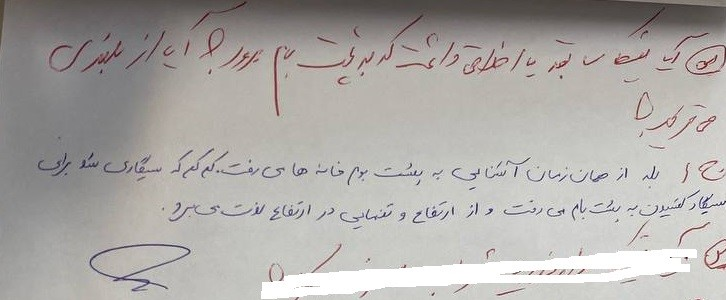 س) آیا نیکا سابقه یا اخلاقی داشت که به پشت بام برود؟ آیا از بلندی
می‌ترسید؟
ج) بله از همان زمان آشنایی به پشت بوم خانه ها می رفت. کم کم که سیگاری شد برای
سیگار کشیدن به پشت بام می رفت و از ارتفاع و تنهایی در ارتفاع لذت می برد.
س) آیا